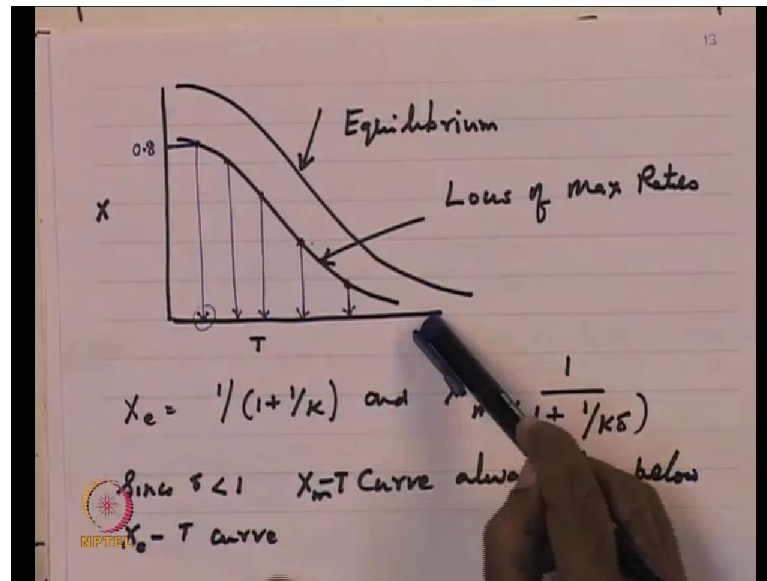 13
Equilibrium
0.8
Locus of Max Rates
X
T
Xe = 1/(1+1/K) and 1 + 1/Kδ)
Since δ < 1 Xm-T Curve below
Xe - T curve
NPTEL